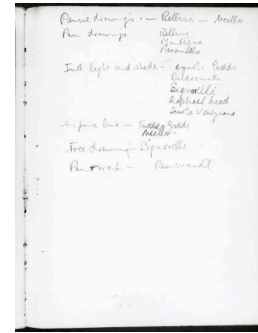 Pencil drawings :— Bellini — Ucello
Pen drawings Bellini
Mantegna
Full light and shade — Agnolo Gaddi
Signorelli
Raphael head
Santo Veneziano
In pure line — Taddeo Gaddi
Ucello.
Free drawing — Signorelli
Pen & wash — Rembrandt